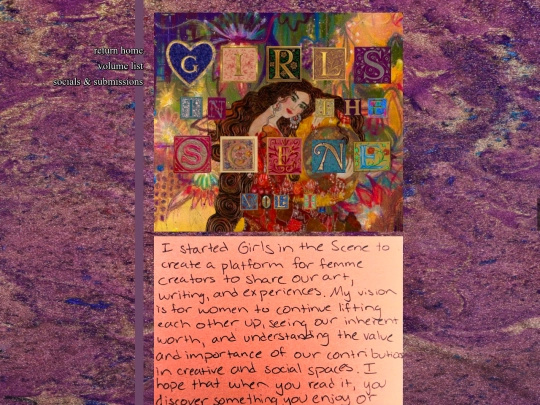 return home
volume list
socials & submissions
GIRLS
IN THE
SCENE
VOL
I started Girls in the Scene to
create a platform for femme
creators to share our art,
writing, and experiences. My vision
is for women to continue lifting
each other up, seeing our inherent
worth, and understanding the value
and importance of our contribution
in creative and social spaces. I
hope that when you read it, you
discover something you enjoy or